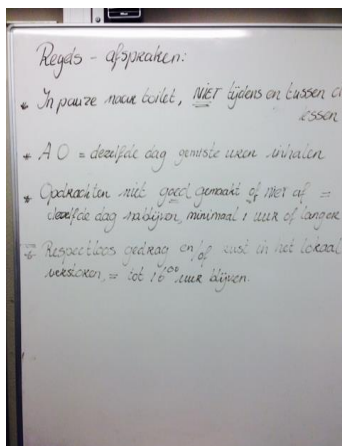 Regels - afspraken:
* In pauze naar toilet, NIET tijdens en tussen d
essen
* AO = dezelfde dag gemiste uren inhalen
* Opdrachten niet goed gemaakt of niet af =
dezelfde dag nablijven, minimaal 1 uur of langer
* Respectloos gedrag en/of rust in het lokaal
verstoren, = tot 16⁰⁰ uur blijven.